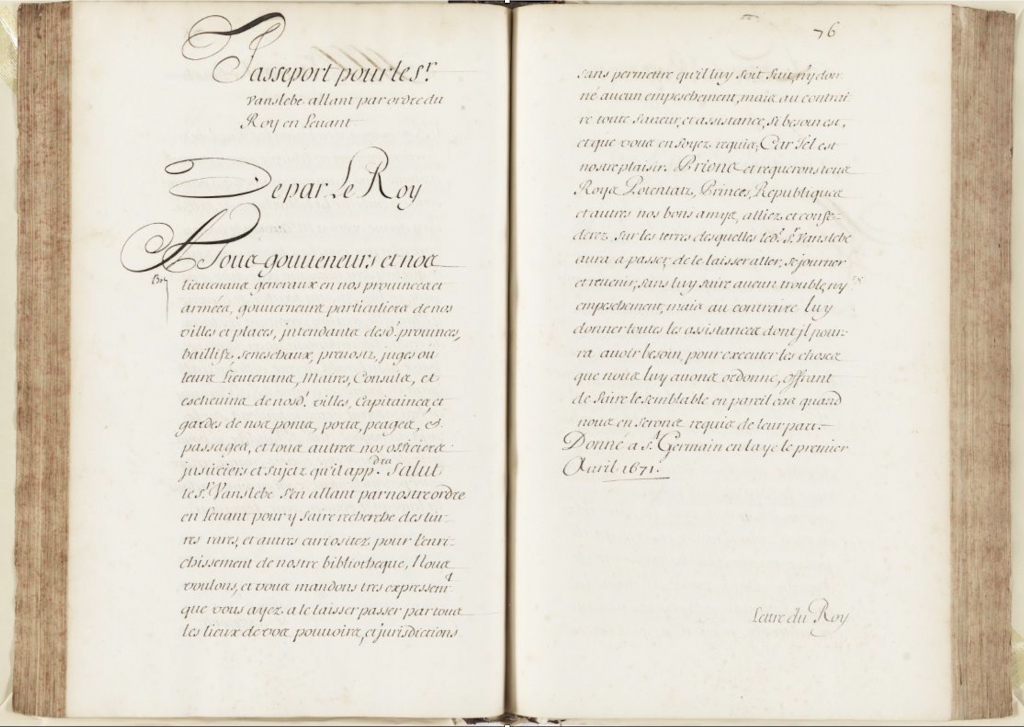 Passeport pour le Sr.
Vanslebe allant par ordre du
Roy en Levant
De par Le Roy
A Tous gouverneurs et nos
Lieutenans generaux en nos provinces et
armées, gouverneurs particuliers de nos
villes et places, intendants desd. provinces,
baillifz, seneschaux, prevostz, juges ou
leurs Lieutenans, Maires, Consuls, et
eschevins de nosd. villes, Capitaines, et
gardes de nos ponts, ports, peages, et
passages, et tous autres nos officiers
justiciers et sujetz qu'il app.dra Salut
le Sr. Vanslebe s'en allant par nostre ordre
en Levant pour y faire recherche des liv-
res rares, et autres curiositez pour l'enri-
chissement de nostre bibliotheque, Nous
voulons, et vous mandons tres expressemt
que vous ayez a le laisser passer par tous
les lieux de vos pouvoirs, et jurisdictions
76
sans permettre qu'il luy soit fait, ny don
né aucun empeschement, mais au contrai
re toute faveur, et assistance, si besoin est,
et que vous en soyez requis, Car Tel est
nostre plaisir. Prions et requerons tous
Roys Potentatz, Princes, Republiques
et autres nos bons amys, alliez et confe-
derez, sur les terres desquelles led. Sr. Vanslebe
aura a passer, de le laisser aller, sejourner
et revenir, sans luy faire aucun trouble, ny
empeschement, mais au contraire luy
donner toutes les assistances dont jl pour-
ra avoir besoin pour executer les choses
que nous luy avons ordonné, offrant
de faire le semblable en pareil cas quand
nous en serons requis de leur part.
Donné a St. Germain en laye le premier
Avril 1671.
Lettre du Roy